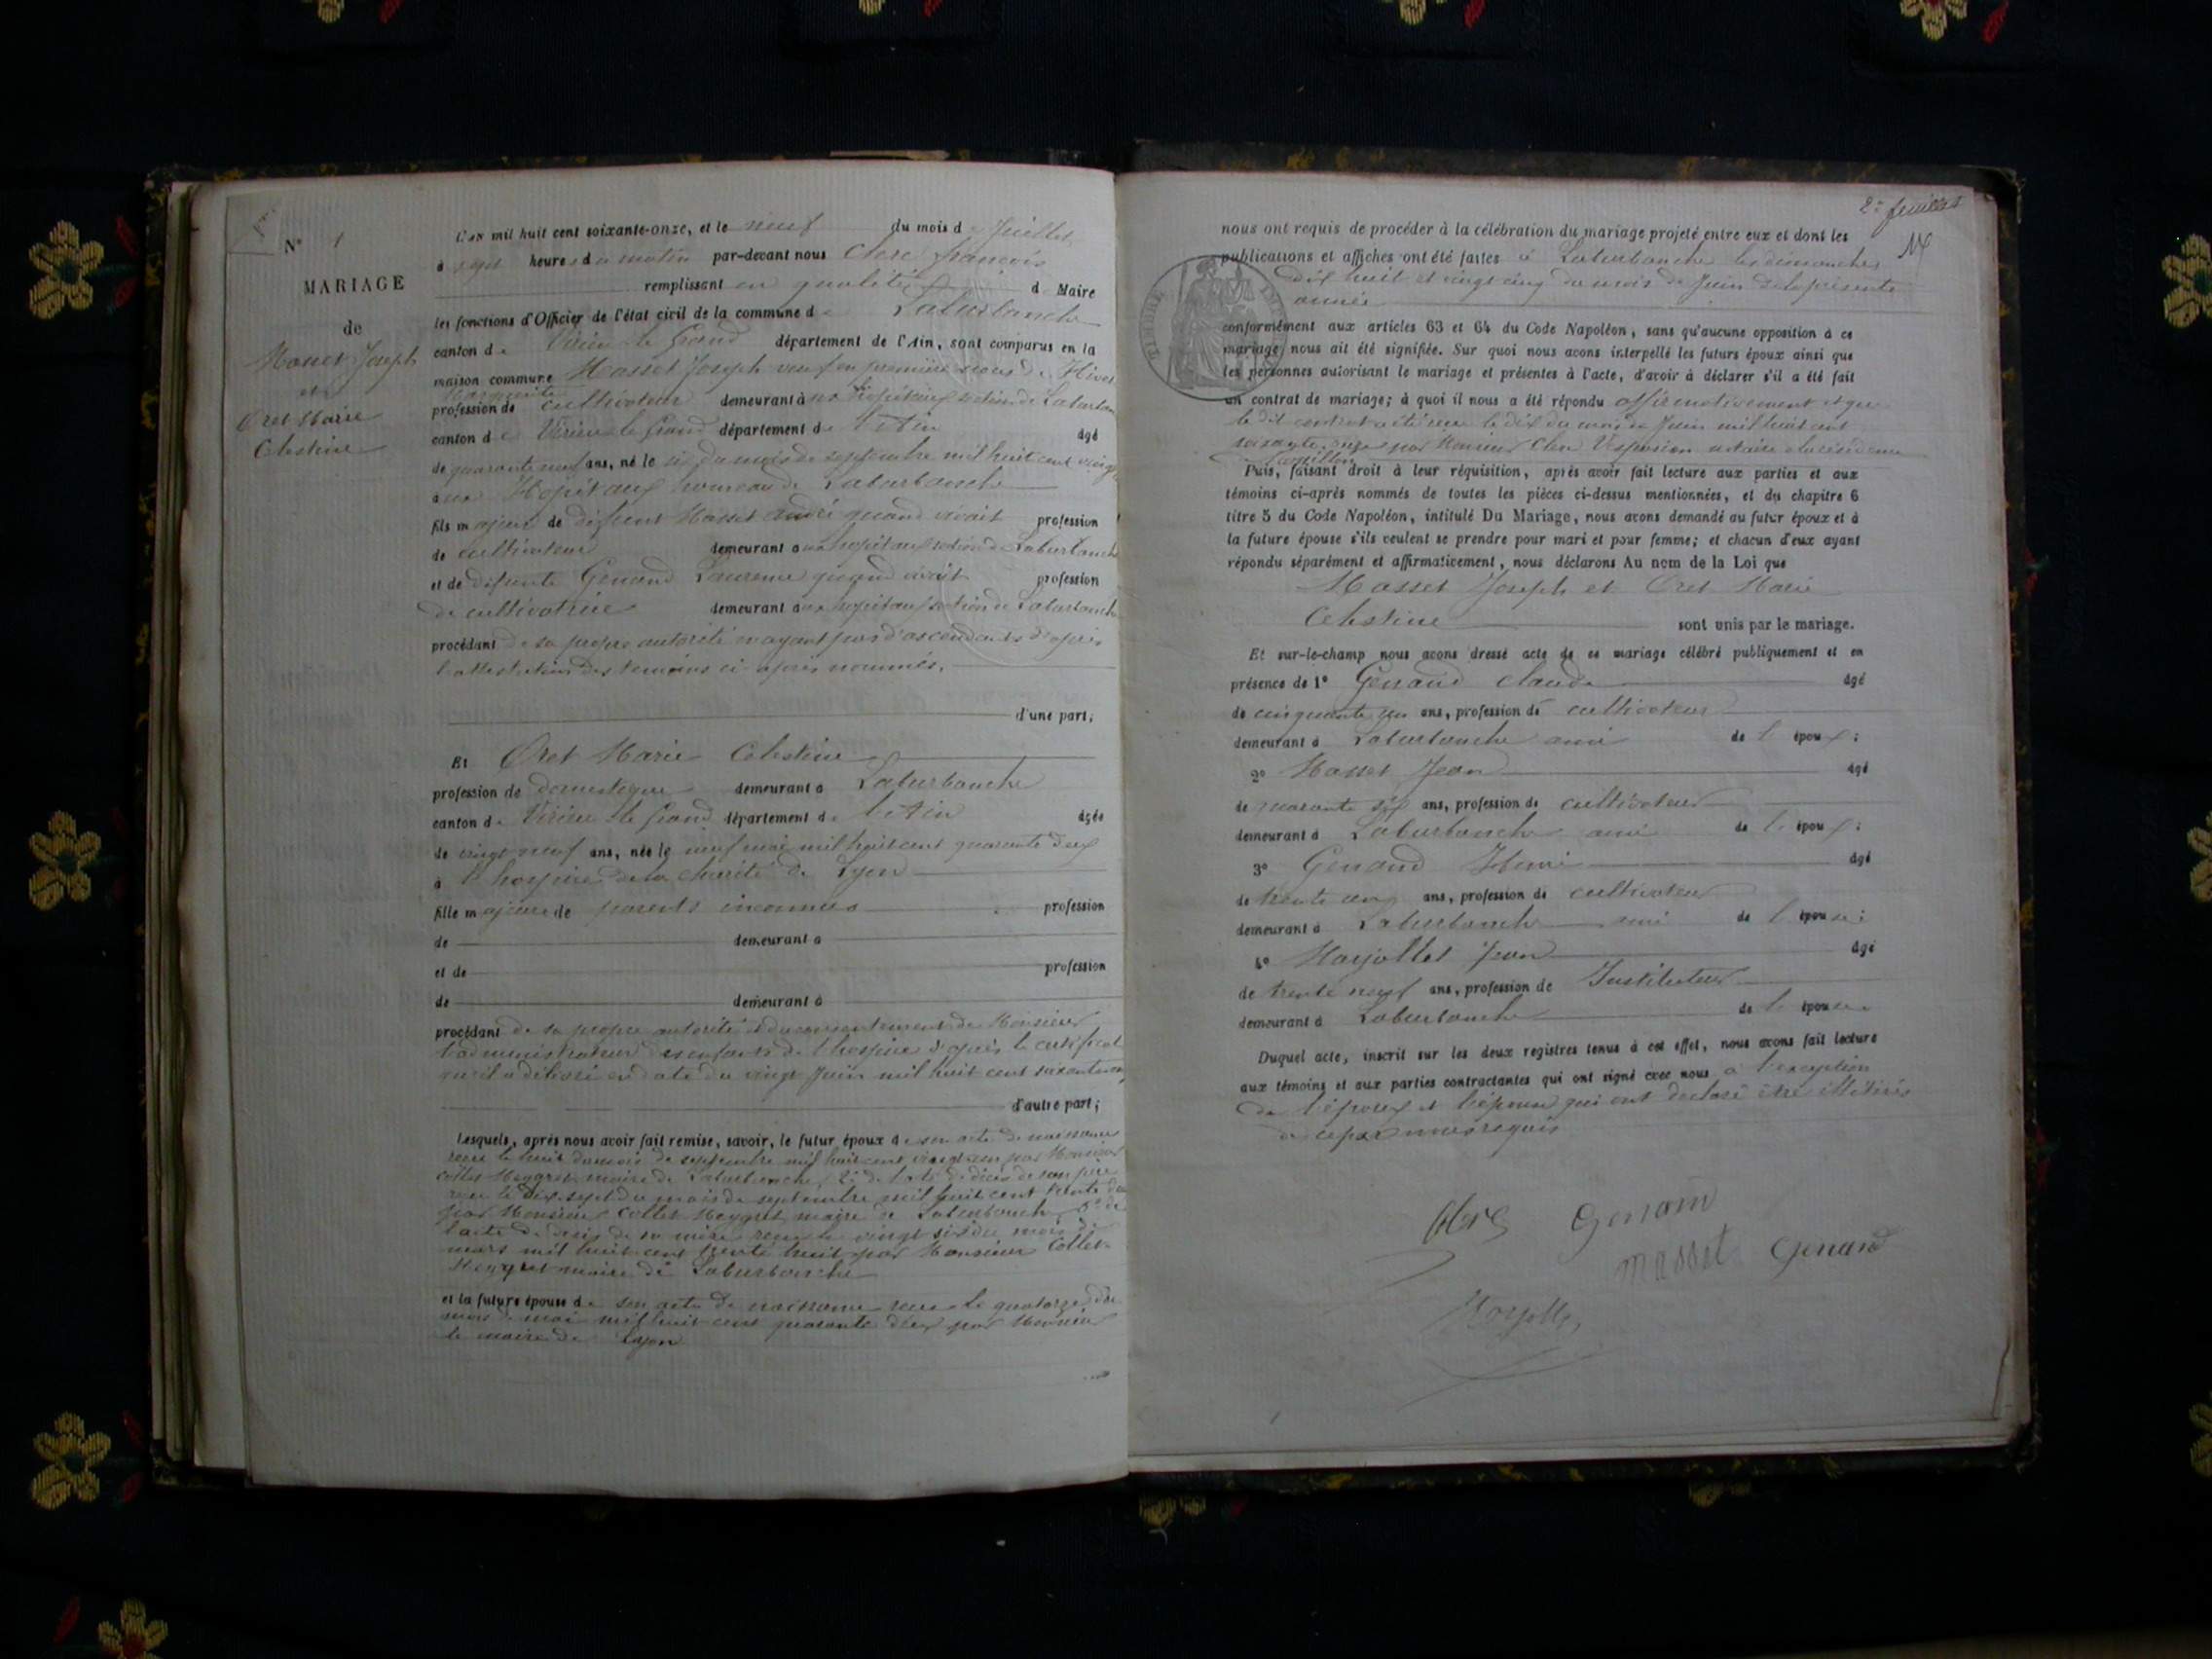 N° 1
MARIAGE
de
Masset Joseph
et
Oret Marie
Célestine
L'an mil huit cent soixante-onze, et le neuf du mois de Juillet
à sept heures du matin par-devant nous Clerc françois
remplissant en qualité d Maire
les fonctions d'Officier de l'état civil de la commune de Laburbanche
canton de Virieu le Grand département de l'Ain, sont comparus en la
maison commune Masset Joseph veuf en première noces de
Marguerite
profession de cultivateur demeurant à aux hopitaux section de Laburban
canton de Virieu le Grand département de l'Ain âgé
de quarante neuf ans, né le six du mois de septembre mil huit cent vingt
à aux Hopitaux hameau de Laburbanche
fils majeur de défunt Masset André quand vivait profession
de cultivateur demeurant à aux hopitaux section de Laburbanch
et de défunte Genand Laurence quand vivait profession
de cultivatrice demeurant à aux hopitaux section de Laburbanch
procédant de sa propre autorité n'ayant pas d'ascendants d'après
l'attestation des témoins ci après nommés.
d'une part;
Et Oret Marie Célestine
profession de domestique demeurant à Laburbanche
canton de Virieu le Grand département de l'Ain âgée
de vingt neuf ans, née le neuf mai mil huit cent quarante deux
à l'hospice de la charité de Lyon
fille majeure de parents inconnus profession
de demeurant à
et de profession
de demeurant à
procédant de sa propre autorité du consentement de Monsieur
l'administrateur des enfants de l'hospice d'après le certificat
qu'il a délivré en date du vingt Juin mil huit cent soixante onze
d'autre part;
Lesquels, après nous avoir fait remise, savoir, le futur époux de son acte de naissance
reçu le huit du mois de septembre mil huit cent vingt un par Monsieur
Collet Meygret maire de Laburbanche, 2° de l'acte de décès de son père
reçu le dix-sept du mois de septembre mil huit cent trente
par Monsieur Collet Meygret maire de Laburbanche 3° de
l'acte de décès de sa mère reçu le vingt six du mois de
mars mil huit cent trente huit par Monsieur Collet-
Meygret maire de Laburbanche
et la future épouse de son acte de naissance reçu le quatorze du
mois de mai mil huit cent quarante deux par Monsieur
le maire de Lyon
2e feuillet
nous ont requis de procéder à la célébration du mariage projeté entre eux et dont les
publications et affiches ont été faites à Laburbanche les dimanches
dix huit et vingt cinq du mois de Juin de la présente
année
TIMBRE
conformément aux articles 63 et 64 du Code Napoléon, sans qu'aucune opposition à ce
mariage nous ait été signifiée. Sur quoi nous avons interpellé les futurs époux ainsi que
les personnes autorisant le mariage et présentes à l'acte, d'avoir à déclarer s'il a été fait
un contrat de mariage; à quoi il nous a été répondu affirmativement et que
le dit contrat a été reçu le dix du mois de Juin mil huit cent
soixante onze par Monsieur Clerc Vespasien notaire à la résidence
Puis, faisant droit à leur réquisition, après avoir fait lecture aux parties et aux
témoins ci-après nommés de toutes les pièces ci-dessus mentionnées, et du chapitre 6
titre 5 du Code Napoléon, intitulé Du Mariage, nous avons demandé au futur époux et à
la future épouse s'ils veulent se prendre pour mari et pour femme; et chacun d'eux ayant
répondu séparément et affirmativement, nous déclarons Au nom de la Loi que
Masset Joseph et Oret Marie
Célestine sont unis par le mariage.
Et sur-le-champ nous avons dressé acte de ce mariage célébré publiquement et en
présence de 1° Genand Claude âgé
de cinquante un ans, profession de cultivateur
demeurant à Laburbanche ami de l'époux;
2° Masset Jean âgé
de quarante six ans, profession de cultivateur
demeurant à Laburbanche ami de l'époux;
3° Genand Henri âgé
de trente cinq ans, profession de cultivateur
demeurant à Laburbanche ami de l'épouse;
4° Marjollet Jean âgé
de trente neuf ans, profession de Instituteur
demeurant à Laburbanche de l'épouse
Duquel acte, inscrit sur les deux registres tenus à cet effet, nous avons fait lecture
aux témoins et aux parties contractantes qui ont signé avec nous à l'exception
de l'époux et l'épouse qui ont déclaré être illétirés
de ce par nous requis
Clerc Genand
Masset Genand